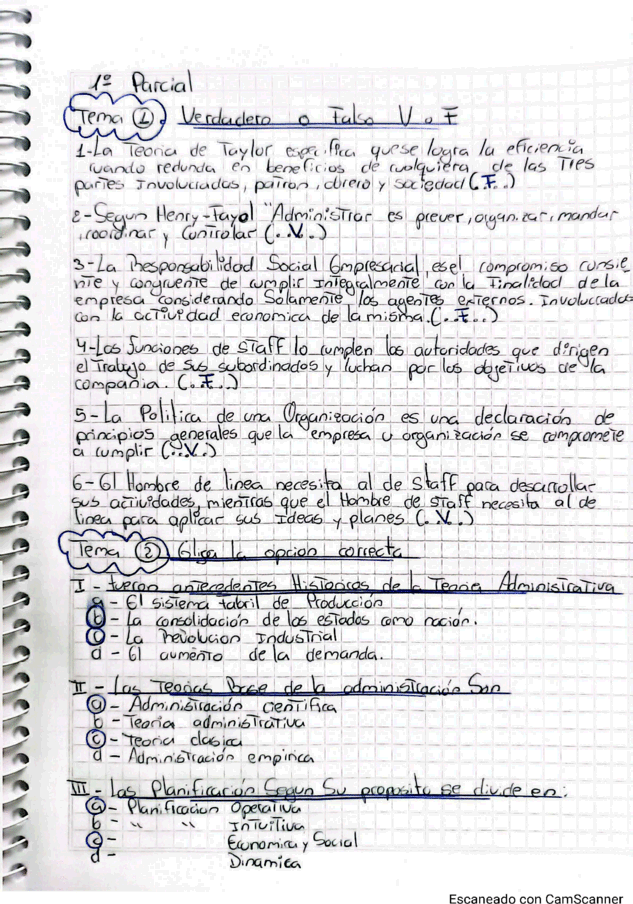 1º Parcial
Tema 1) Verdadero o Falso V o F
1-La Teoria de Taylor especifica que se logra la eficiencia
cuando redunda en beneficios de cualquiera de las Tres
partes Involucradas, patron, obrero y sociedad (.F..)
2-Segun Henry-Fayol "Administrar es prever, organizar, mandar
, coordinar y Controlar (..V..)
3-La Responsabilidad Social Empresarial, es el compromiso consie
nte y congruente de cumplir Integralmente con la Finalidad de la
empresa considerando Solamente los agentes externos. Involucrados
con la actividad economica de la misma.(..F..)
4-Las funciones de STaff lo cumplen las autoridades que dirigen
el Trabajo de sus subordinados y luchan por los objetivos de la
compañia. (..F..)
5-La Politica de una Organización es una declaración de
principios generales que la empresa u organización se compromete
a cumplir (..V..)
6-El Hombre de linea necesita al de Staff para desarrollar
sus actividades, mientras que el Hombre de staff necesita al de
linea para aplicar sus Ideas y planes (..V..)
Tema 2) Elija la opcion correcta
I - fueron antecedentes Historicos de la Teoria Administrativa
a - El sistema fabril de Producción
b - La consolidación de los estados como nación.
c - La Revolucion Industrial
d - El aumento de la demanda.
II - Las Teorias Base de la administración Son
a - Administración cientifica
b - Teoria administrativa
c - Teoria clasica
d - Administración empirica
III - Las Planificación Segun Su proposito se divide en:
a - Planificacion Operativa
b - " " Intuitiva
c - Economica y Social
d - Dinamica
Escaneado con CamScanner